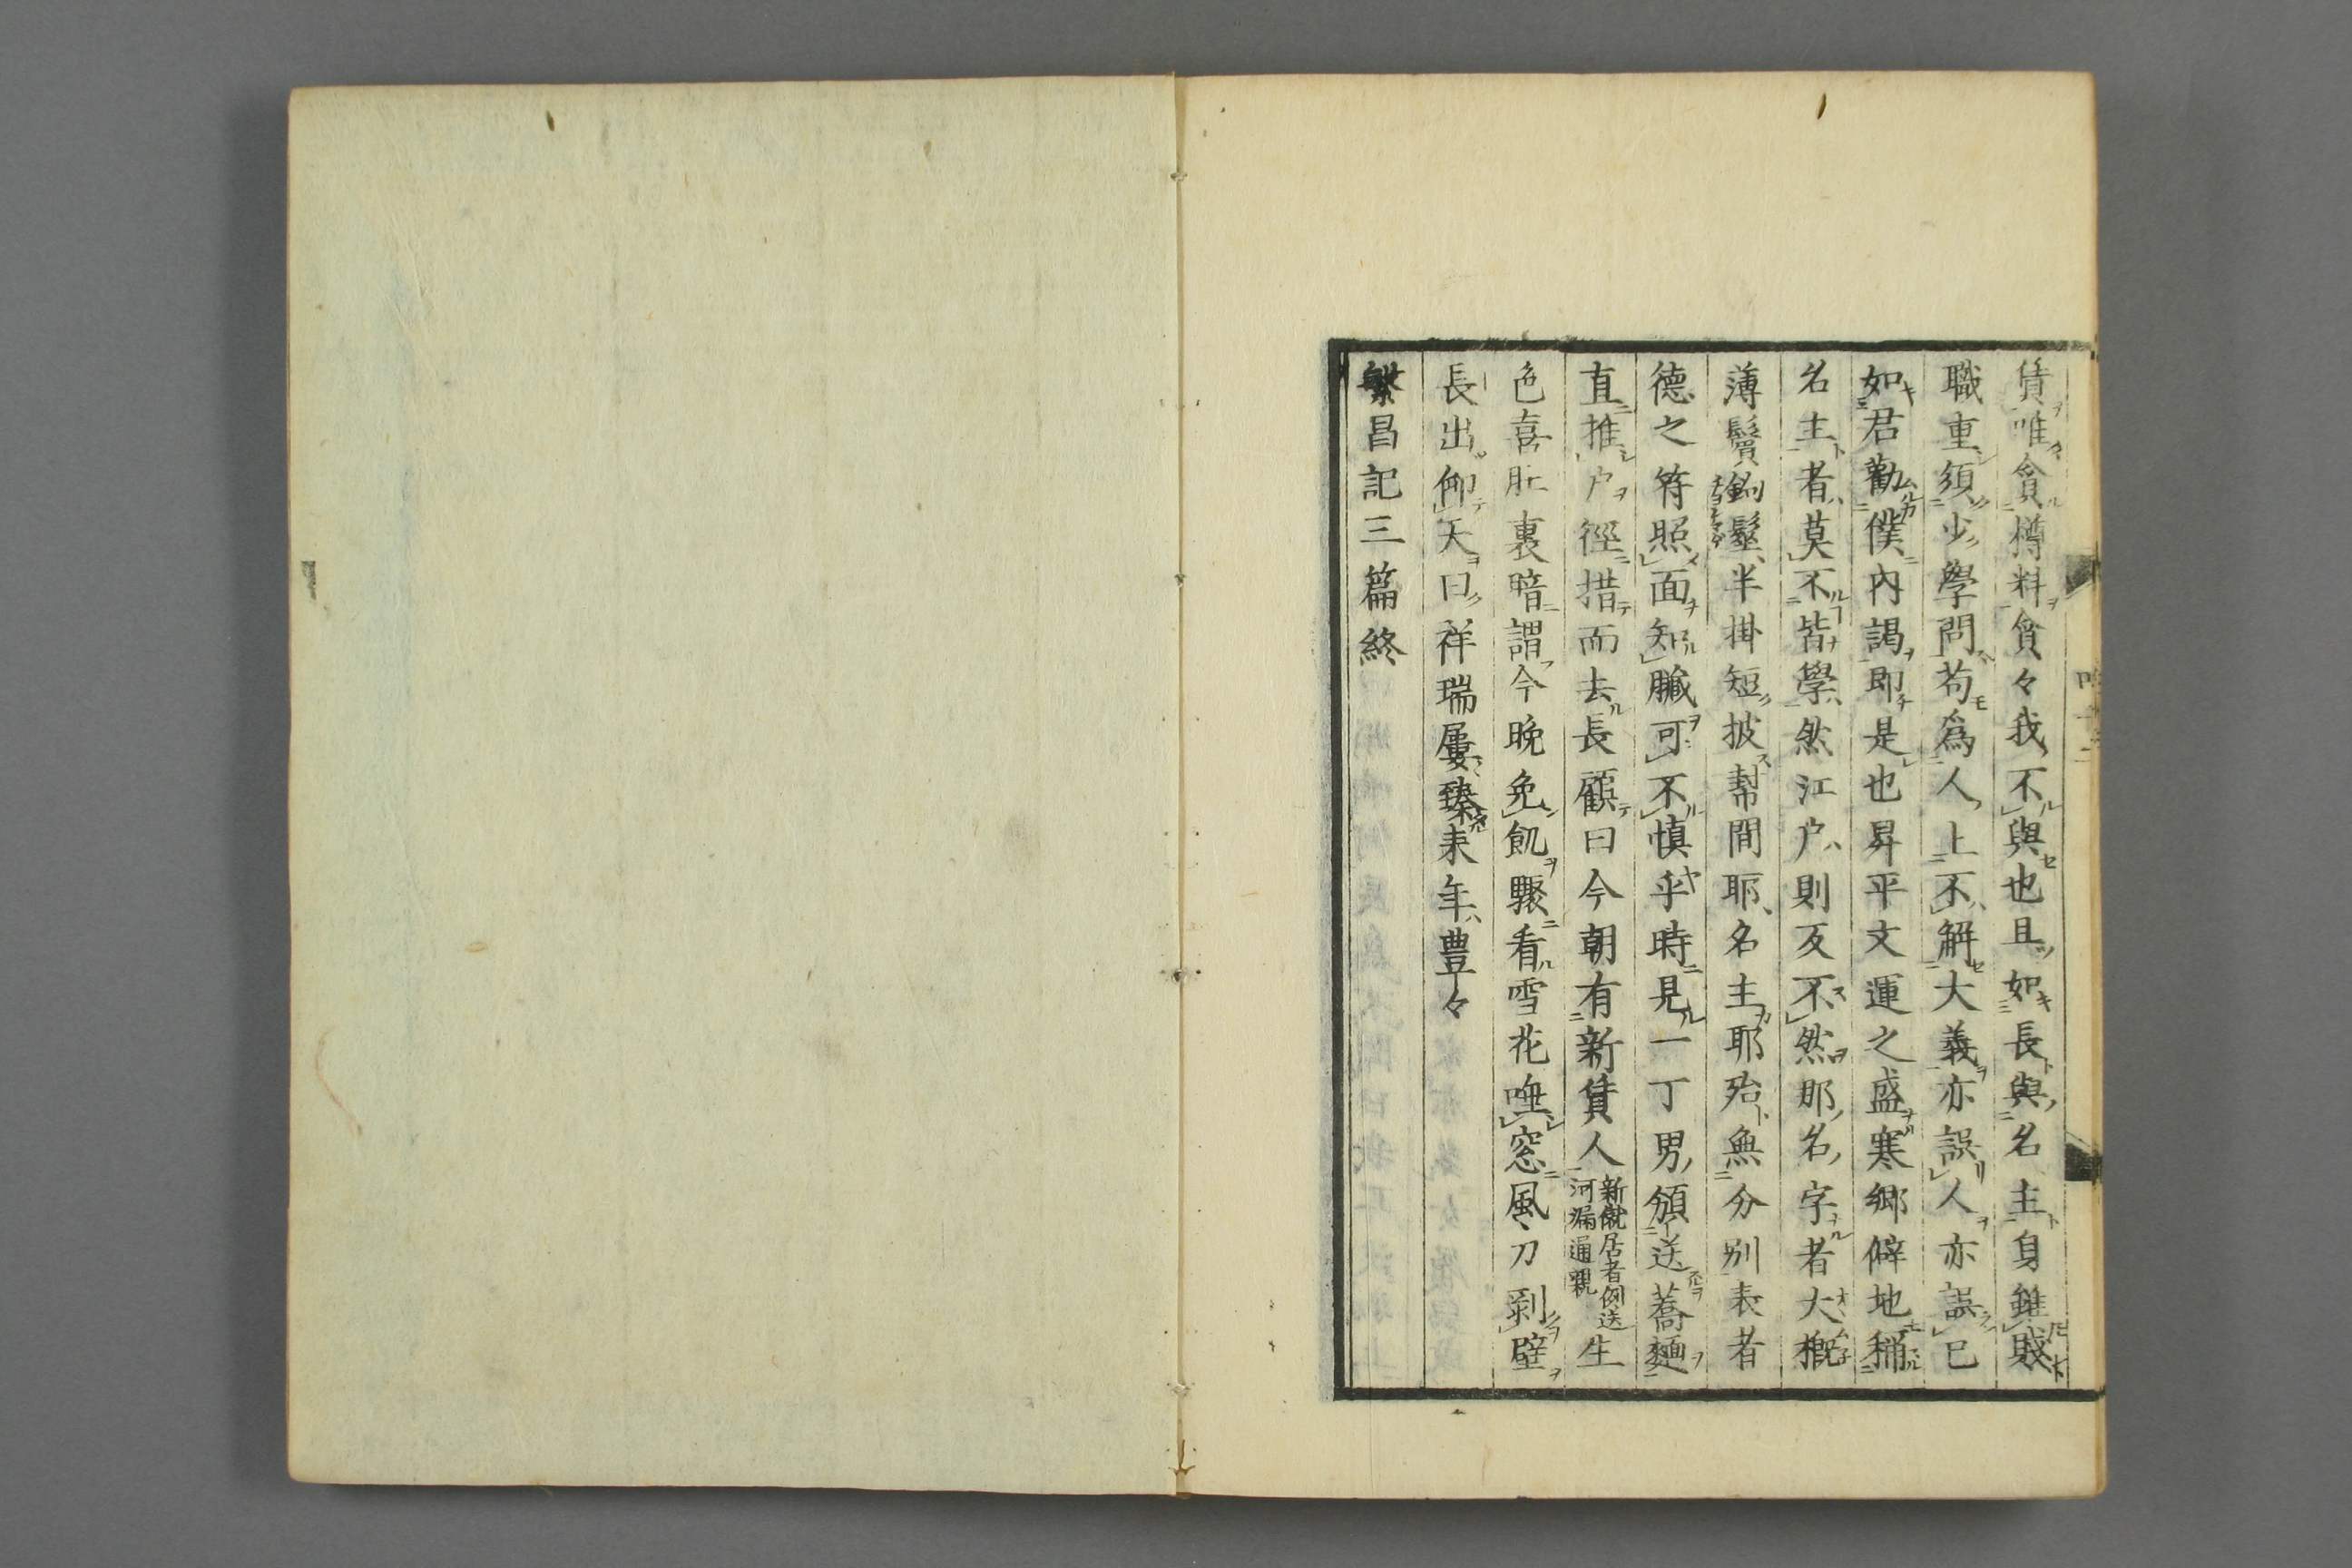 賃唯貪樽料貪々我不與也且如長與名主身雖賤
職重須少學問苟爲人上不解大義亦誤人亦誤已
如君勸僕內謁即是也昇平文運之盛寒鄉僻地稱
名主者莫不皆學然江户則反不然那名字者大概
薄鬢鬆半掛短披幇間耶名主耶殆無分別表者
德之符照面知臟可不慎乎時見一丁男頒送蕎麵
直推户徑措而去長顧曰今朝有新賃人新僦居者例送河漏通親生
色喜肚裏暗謂今晚免飢驟看雪花噉窓風刀剥壁
長出仰天曰祥瑞屢臻来年豊々
繁昌記三篇終